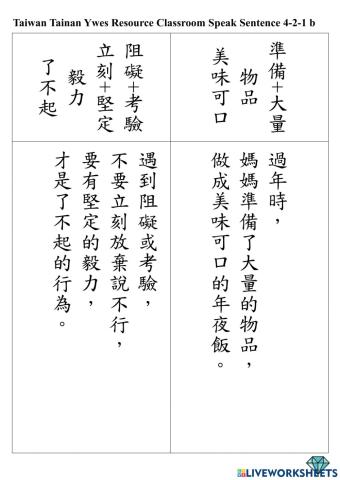 Taiwan Tainan Ywes Resource Classroom Speak Sentence 4-2-1 b
準備+大量
物品
美味可口
阻礙+考驗
立刻+堅定
毅力
了不起
過年時，
媽媽準備了大量的物品，
做成美味可口的年夜飯。
遇到阻礙或考驗，
不要立刻放棄說不行，
要有堅定的毅力，
才是了不起的行為。
LIVEWORKSHEETS